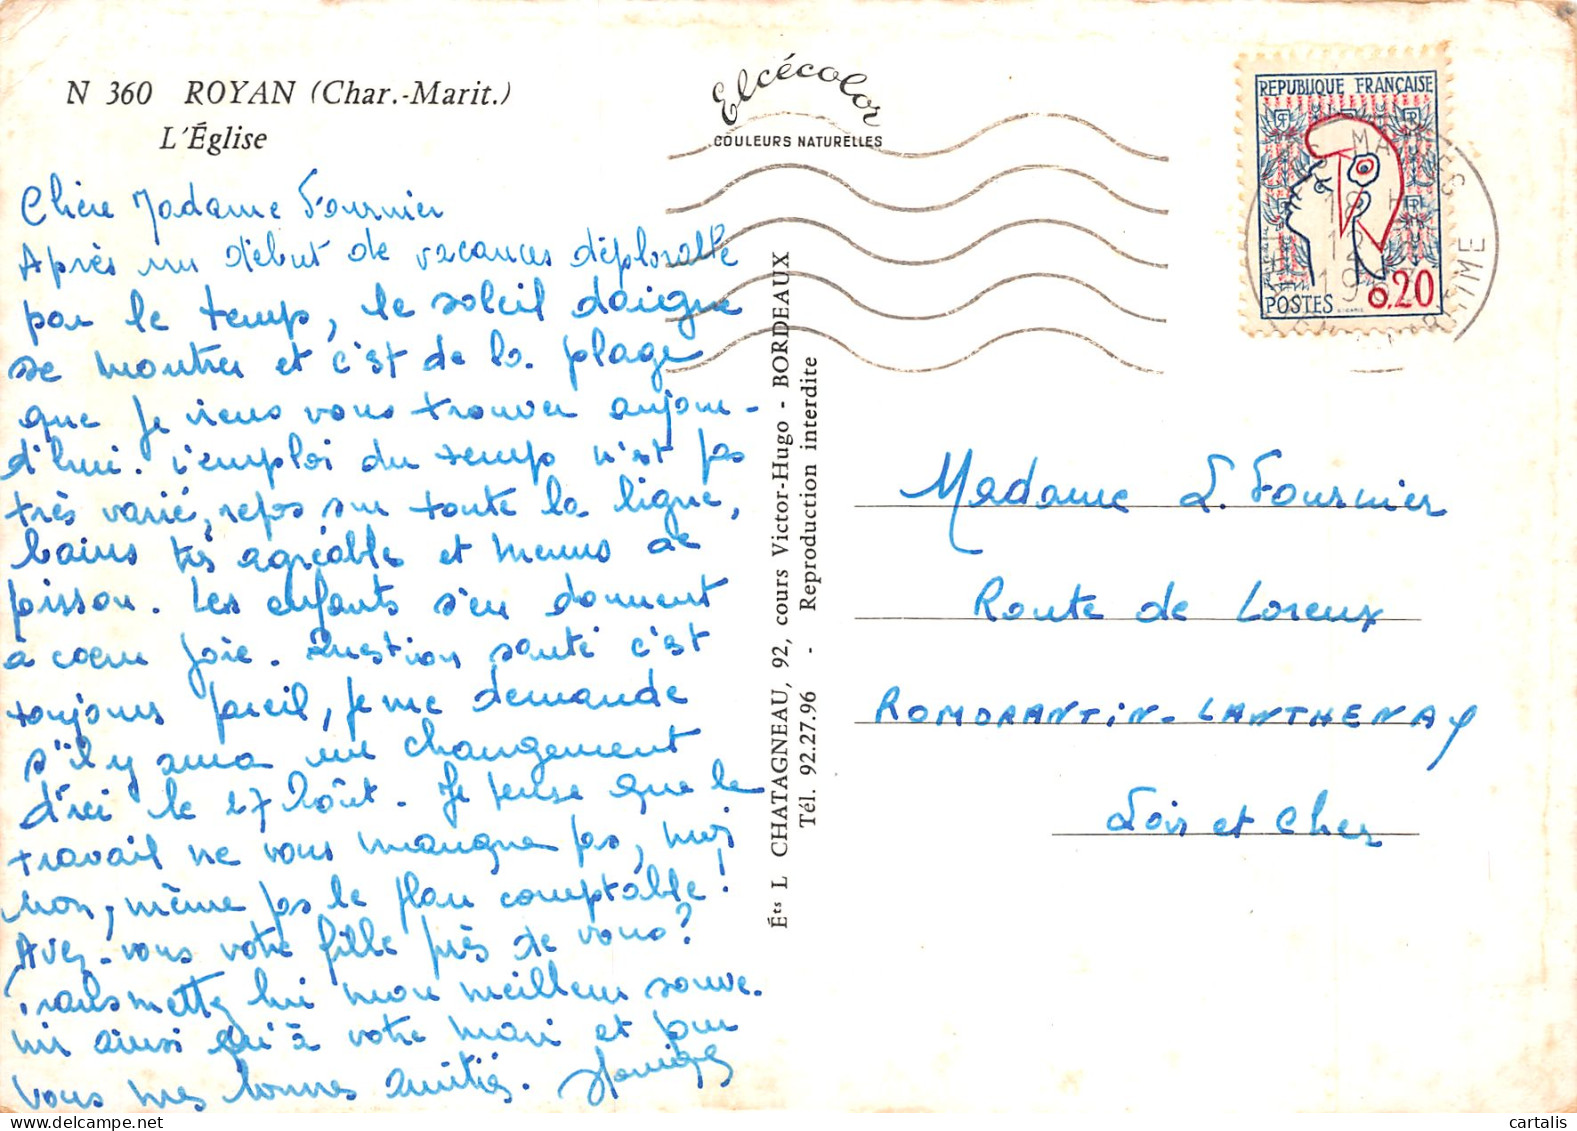 N 360 ROYAN (Char.-Marit.)
L'Église
Elcécolor
COULEURS NATURELLES
REPUBLIQUE FRANÇAISE
POSTES 0,20
18 H
12
19
Chère Madame Fournier
Après un début de vacances déplorable
par le temps, le soleil daigne
se montrer et c'est de la plage
que je viens vous trouver aujour-
d'hui. L'emploi du temps n'est pas
très varié, repos sur toute la ligne,
bains très agréable et menus de
poisson. Les enfants s'en donnent
à coeur joie. Question santé c'est
toujours pareil, je me demande
s'il y aura un changement
d'ici le 27 Août. Je pense que le
travail ne vous manque pas, moi
non, même pas le plan comptable!
Avez-vous votre fille près de vous?
Transmettez lui mon meilleur souve-
nir ainsi qu'à votre mari et pour
vous mes bonnes amitiés.
Éts L CHATAGNEAU, 92, cours Victor-Hugo - BORDEAUX
Tél. 92.27.96 - Reproduction interdite
Madame L. Fournier
Route de Loreux
ROMORANTIN-LANTHENAY
Loir et Cher
cartalis